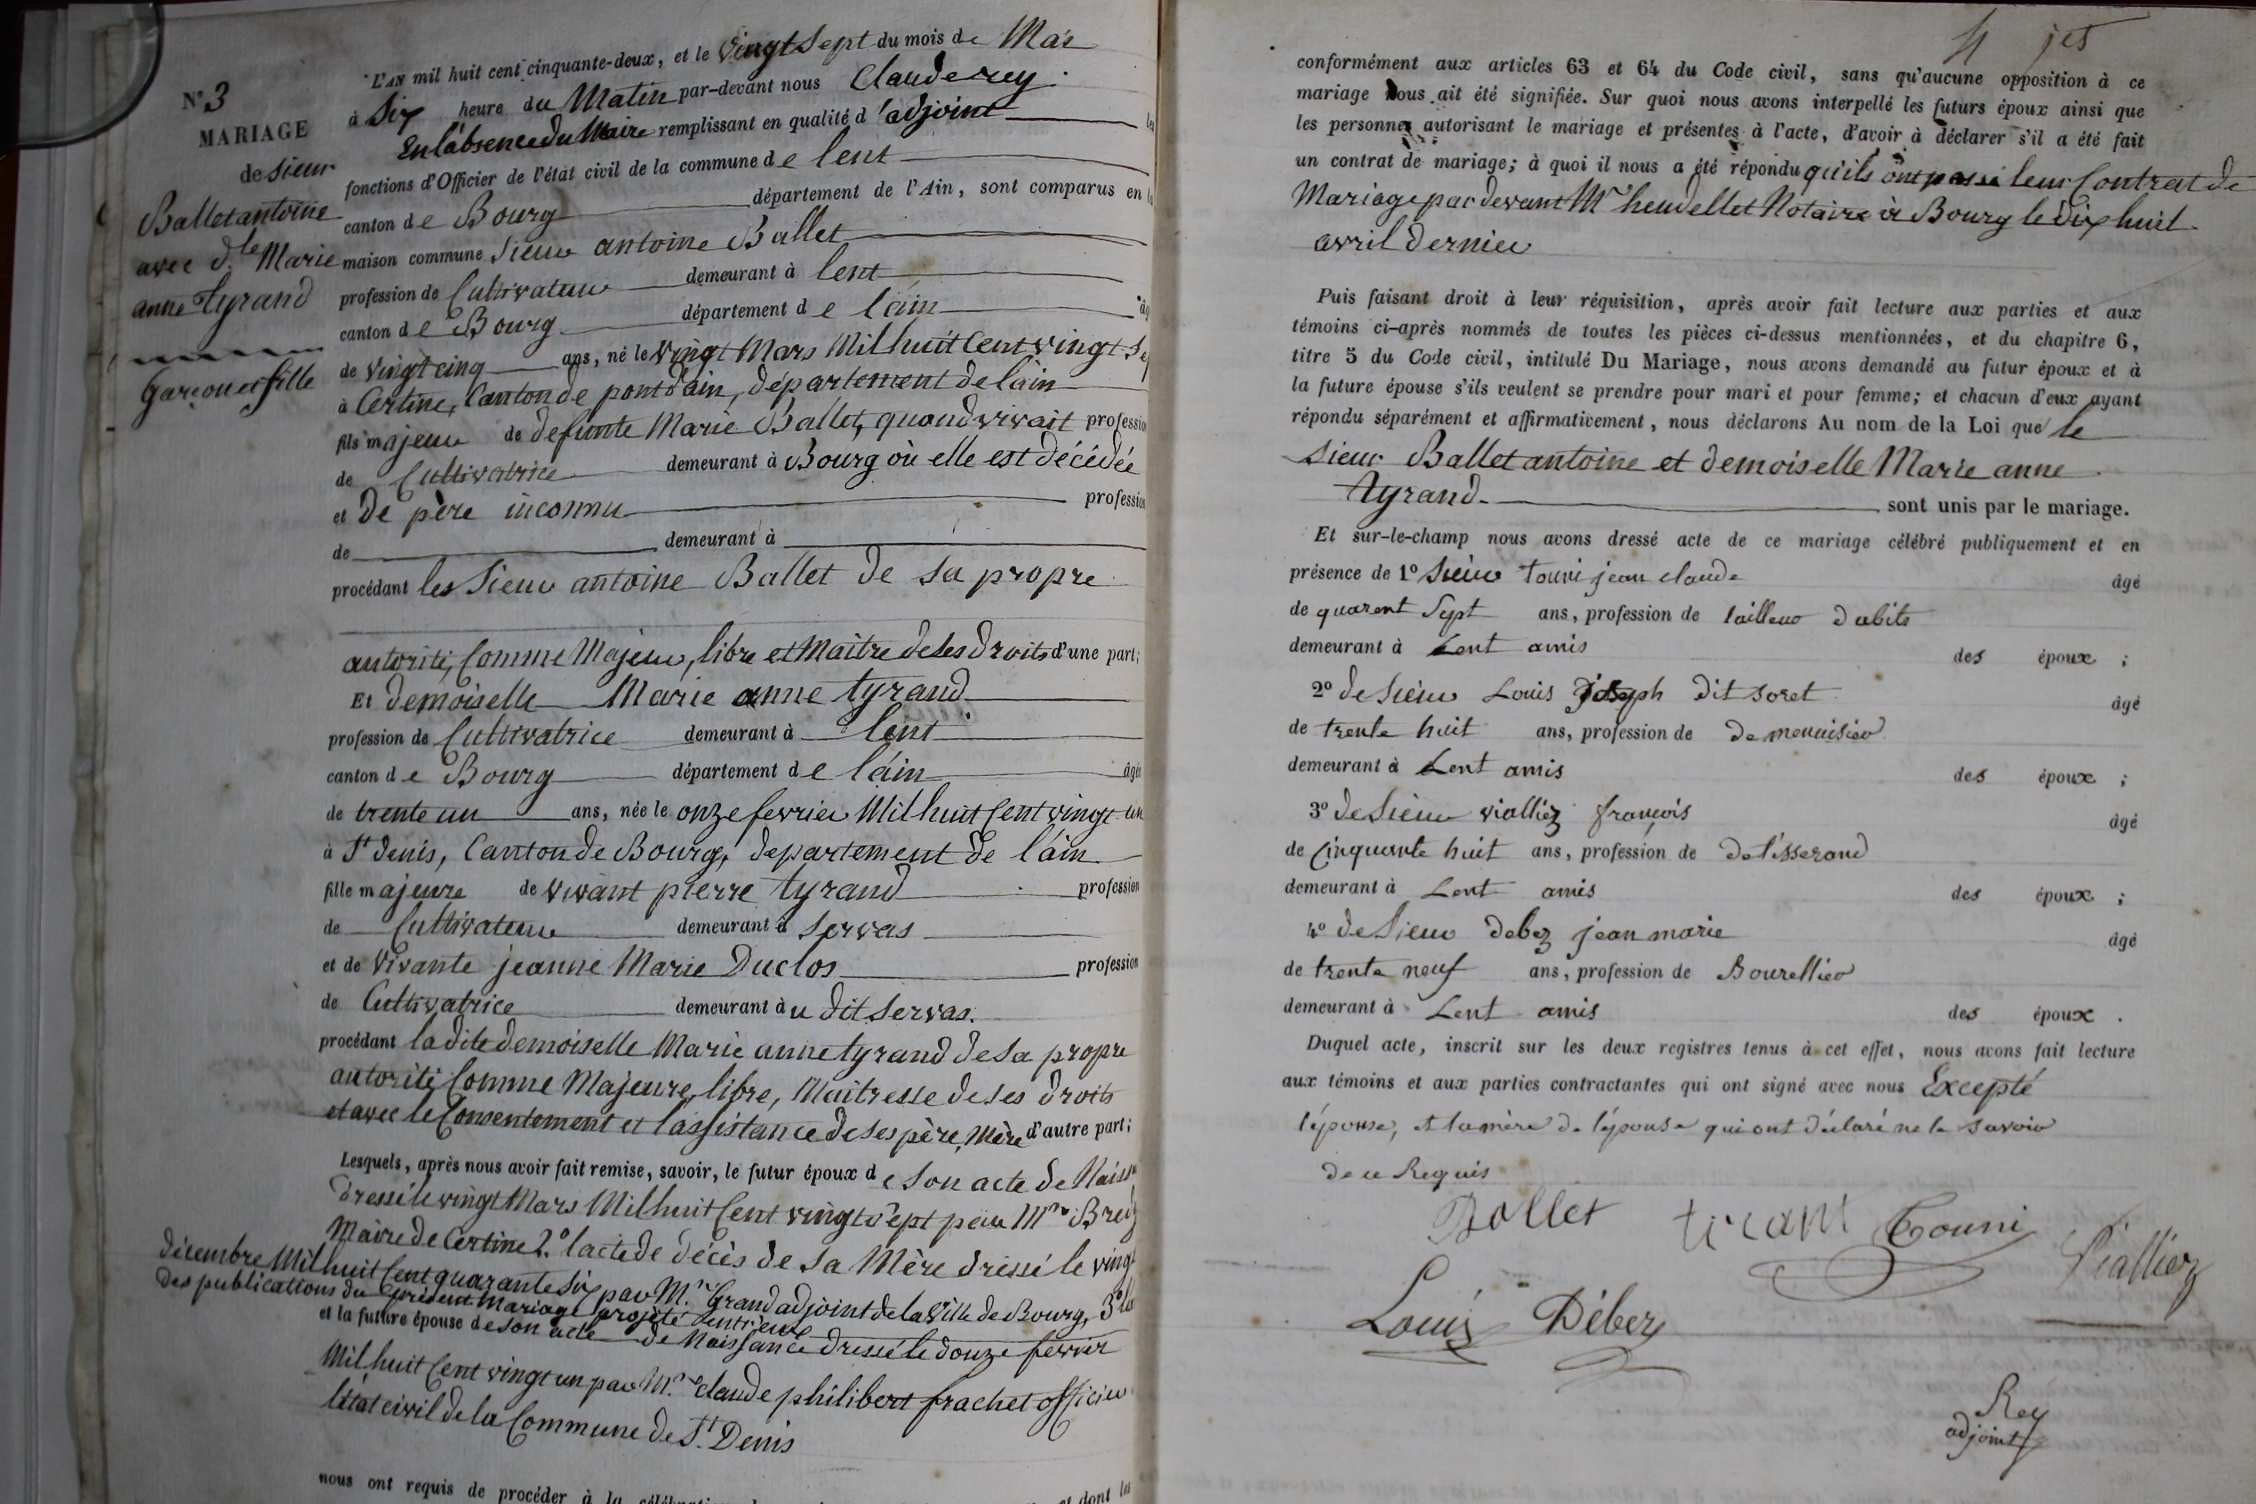 N° 3
MARIAGE
de sieur
Ballet antoine
avec d.lle Marie
anne tyrand
garçon et fille
L'AN mil huit cent cinquante-deux, et le vingt sept du mois de Mai
à Six heure du Matin par-devant nous Claude rey
En l'absence du Maire remplissant en qualité d'adjoint les
fonctions d'Officier de l'état civil de la commune de lent
canton de Bourg département de l'Ain, sont comparus en la
maison commune Sieur antoine Ballet
profession de Cultivateur demeurant à lent
canton de Bourg département de l'ain
de vingt cinq ans, né le vingt Mars Mil huit Cent vingt Sept
à Certine, Canton de pont d'ain, département de l'ain
fils majeur de defunte Marie Ballet, quand vivait profession
de Cultivatrice demeurant à Bourg où elle est décédée
et de père inconnu profession
de demeurant à
procédant les Sieur antoine Ballet de sa propre
autorité, Comme Majeur, libre et Maitre de ses Droits d'une part;
Et demoiselle Marie anne tyrand
profession de Cultivatrice demeurant à lent
canton de Bourg département de l'ain âgée
de trente un ans, née le onze fevrier Mil huit Cent vingt un
à St denis, Canton de Bourg, departement de l'ain
fille majeure de vivant pierre tyrand profession
de Cultivateur demeurant à Servas
et de Vivante jeanne Marie Duclos profession
de Cultivatrice demeurant à u dit Servas.
procédant la dite demoiselle Marie anne tyrand de sa propre
autorité, Comme Majeure, libre, Maitresse de ses droits
et avec le Consentement et l'assistance de ses père, Mère d'autre part;
Lesquels, après nous avoir fait remise, savoir, le futur époux de son acte de Naiss
dressé le vingt Mars Mil huit Cent vingt sept par Mr
Maire de Certine 2.° l'acte de décès de sa Mère dressé le vingt
décembre Mil huit Cent quarante six par M.r Grand adjoint de la Ville de Bourg, 3°
des publications du présent Mariage projeté entrieux
et la future épouse de son acte de Naissance dressé le douze fevrier
Mil huit Cent vingt un par M.r Claude philibert frachet officier
l'état civil de la Commune de St. Denis
nous ont requis de procéder à la
4 jet
conformément aux articles 63 et 64 du Code civil, sans qu'aucune opposition à ce
mariage nous ait été signifiée. Sur quoi nous avons interpellé les futurs époux ainsi que
les personnes autorisant le mariage et présentes à l'acte, d'avoir à déclarer s'il a été fait
un contrat de mariage; à quoi il nous a été répondu qu'ils ont passé leur Contrat de
Mariage par devant Mr heudellet Notaire à Bourg le dix huit
avril dernier
Puis faisant droit à leur réquisition, après avoir fait lecture aux parties et aux
témoins ci-après nommés de toutes les pièces ci-dessus mentionnées, et du chapitre 6,
titre 5 du Code civil, intitulé Du Mariage, nous avons demandé au futur époux et à
la future épouse s'ils veulent se prendre pour mari et pour femme; et chacun d'eux ayant
répondu séparément et affirmativement, nous déclarons Au nom de la Loi que le
sieur Ballet antoine et demoiselle Marie anne
tyrand sont unis par le mariage.
Et sur-le-champ nous avons dressé acte de ce mariage célébré publiquement et en
présence de 1° Sieur touni jean claude âgé
de quarent Sept ans, profession de tailleur dabits
demeurant à Lent amis des époux ;
2° de Sieur Louis joseph dit soret âgé
de trente huit ans, profession de de menuisier
demeurant à Lent amis des époux ;
3° de Sieur vialliez françois âgé
de Cinquante huit ans, profession de de tisserand
demeurant à Lent amis des époux ;
4° de Sieur debez jean marie âgé
de trente neuf ans, profession de Bourellier
demeurant à Lent amis des époux .
Duquel acte, inscrit sur les deux registres tenus à cet effet, nous avons fait lecture
aux témoins et aux parties contractantes qui ont signé avec nous Excepté
l'épouse, et la mère de l'épouse qui ont déclaré ne le savoir
de ce Requis
Bollet tirant Touni
Vialliez
Louis Débez
Rey
adjoint